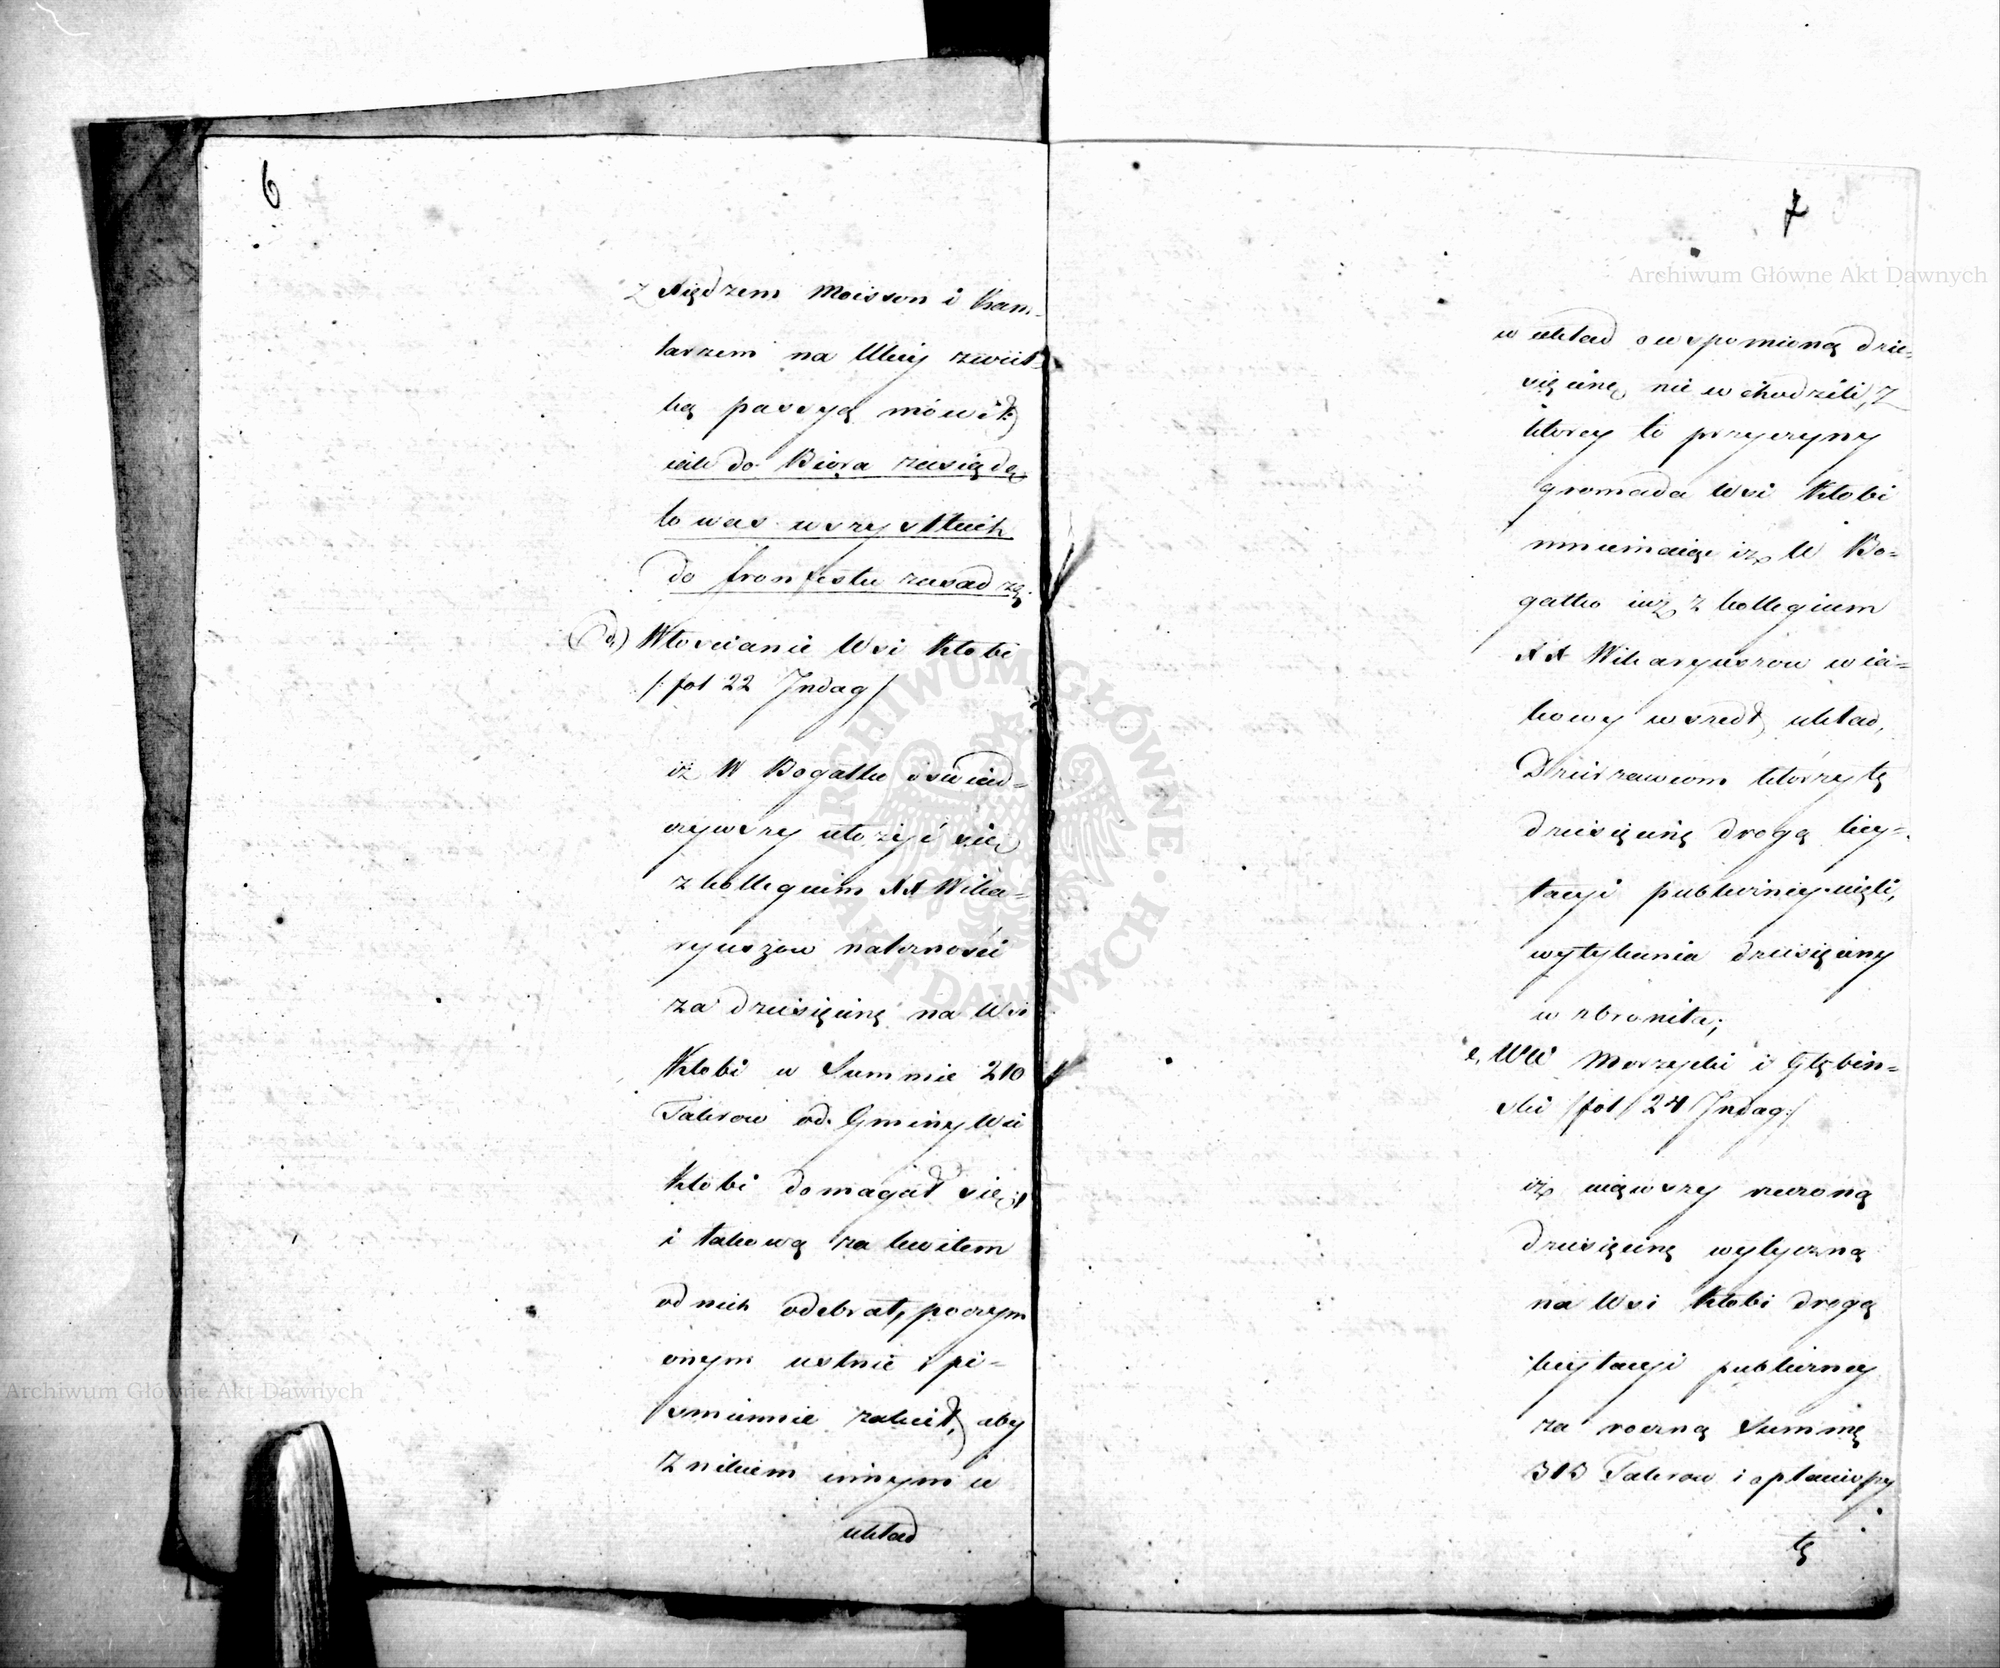 6
z Xiędzem Moisson i Kam-
larzem na Ulicy zwiel-
ką passyą mówił:
iak do Biora zasiądę
to was wszystkich
do fronfestu zasadzę.
d.) Włoscianie Wsi Kłobi
/: fol 22 Jndag /
iż W Bogatko oswiad-
czywszy ułożyć się
z kollegium XX Wika-
ryuszow należności
za dziesięcinę na Wsi
Kłobi w Summie 210
Talerow od Gminy Wsi
Kłobi domagał się
i takową za kwitem
od nich odebrał, poczym
onym ustnie i pi-
smiennie zalecił, aby
z nikiem innym w
układ
7
w układ o wspomioną dzie-
sięcinę nie wchodzili, z
ktorey to przyczyny
gromada Wsi Kłobi
mniemaiąc iż W Bo-
gatko iuż z kollegium
XX Wikaryuszow w ia-
kowy wszedł układ,
Dzierzawcom którzy tę
dziesięcinę drogą licy-
tacyi publiczney wzięli,
wytykania dziesięciny
wzbroniła;
e, WW Morzycki i Głębin-
ski /fol/ 24 Jndag:/
iż wziąwszy rzeczoną
dziesięcinę wytyczną
na Wsi Kłobi drogą
licytacyi publiczney
za roczną Summę
313 Talerow i opłaciwszy
tę
Archiwum Główne Akt Dawnych
Archiwum Główne Akt Dawnych
ARCHIWUM GŁÓWNE AKT DAWNYCH